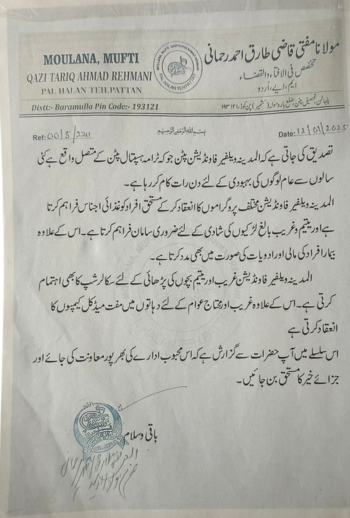 MOULANA, MUFTI
QAZI TARIQ AHMAD REHMANI
PAL HALAN TEH.PATTAN
Distt:- Baramulla Pin Code:- 193121
مولانا مفتی قاضی طارق احمد رحمانی
تخصص فی الافتاء والقضاء
ایم،اے،اُردو
Ref:
بسم اللہ الرحمٰن الرحیم
Date:
تصدیق کی جاتی ہے کہ المدینہ ویلفیر فاونڈیشن پٹن جو کہ ٹرامہ ہسپتال پٹن کے متصل واقع ہے کئی
سالوں سے عام لوگوں کی بہبودی کے لئے دن رات کام کر رہا ہے۔
المدینہ ویلفیر فاونڈیشن مختلف پروگراموں کا انعقاد کر کے مستحق افراد کو غذائی اجناس فراہم کرتا
ہے اور یتیم و غریب بالغ لڑکیوں کی شادی کے لئے ضروری سامان فراہم کرتا ہے۔ اس کے علاوہ
بیمار افراد کی مالی اور ادویات کی صورت میں بھی مدد کرتا ہے۔
المدینہ ویلفیر فاونڈیشن غریب اور یتیم بچوں کی پڑھائی کے لئے سکالرشپ کا بھی اہتمام
کرتی ہے۔ اس کے علاوہ غریب اور محتاج عوام کے لئے دہاتوں میں مفت میڈیکل کیمپوں کا
انعقاد کرتی ہے
اس سلسلے میں آپ حضرات سے گزارش ہے کہ اس محبوب ادارے کی بھرپور معاونت کی جائے اور
جزائے خیر کا مستحق بن جائیں۔
باقی وسلام